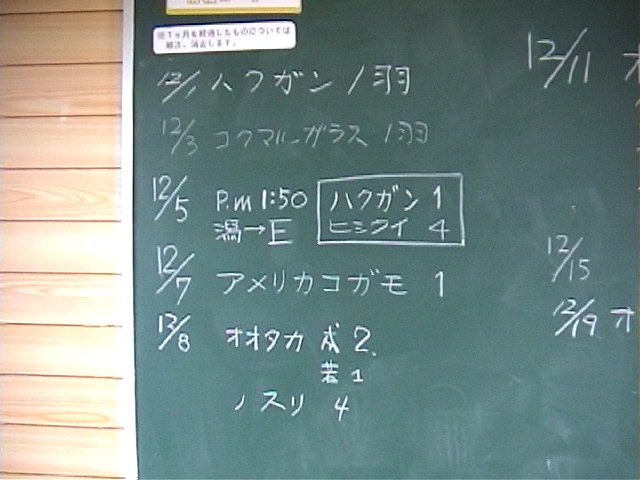 ※1ヶ月を経過したものについては
順次、消去します。
12/1 ハクガン 1羽
12/3 コクマルガラス 1羽
12/5 P.m 1:50 ハクガン 1
潟→E ヒシクイ 4
12/7 アメリカコガモ 1
12/8 オオタカ 成 2.
若 1
ノスリ 4
12/11 オ
12/15
12/19 オ